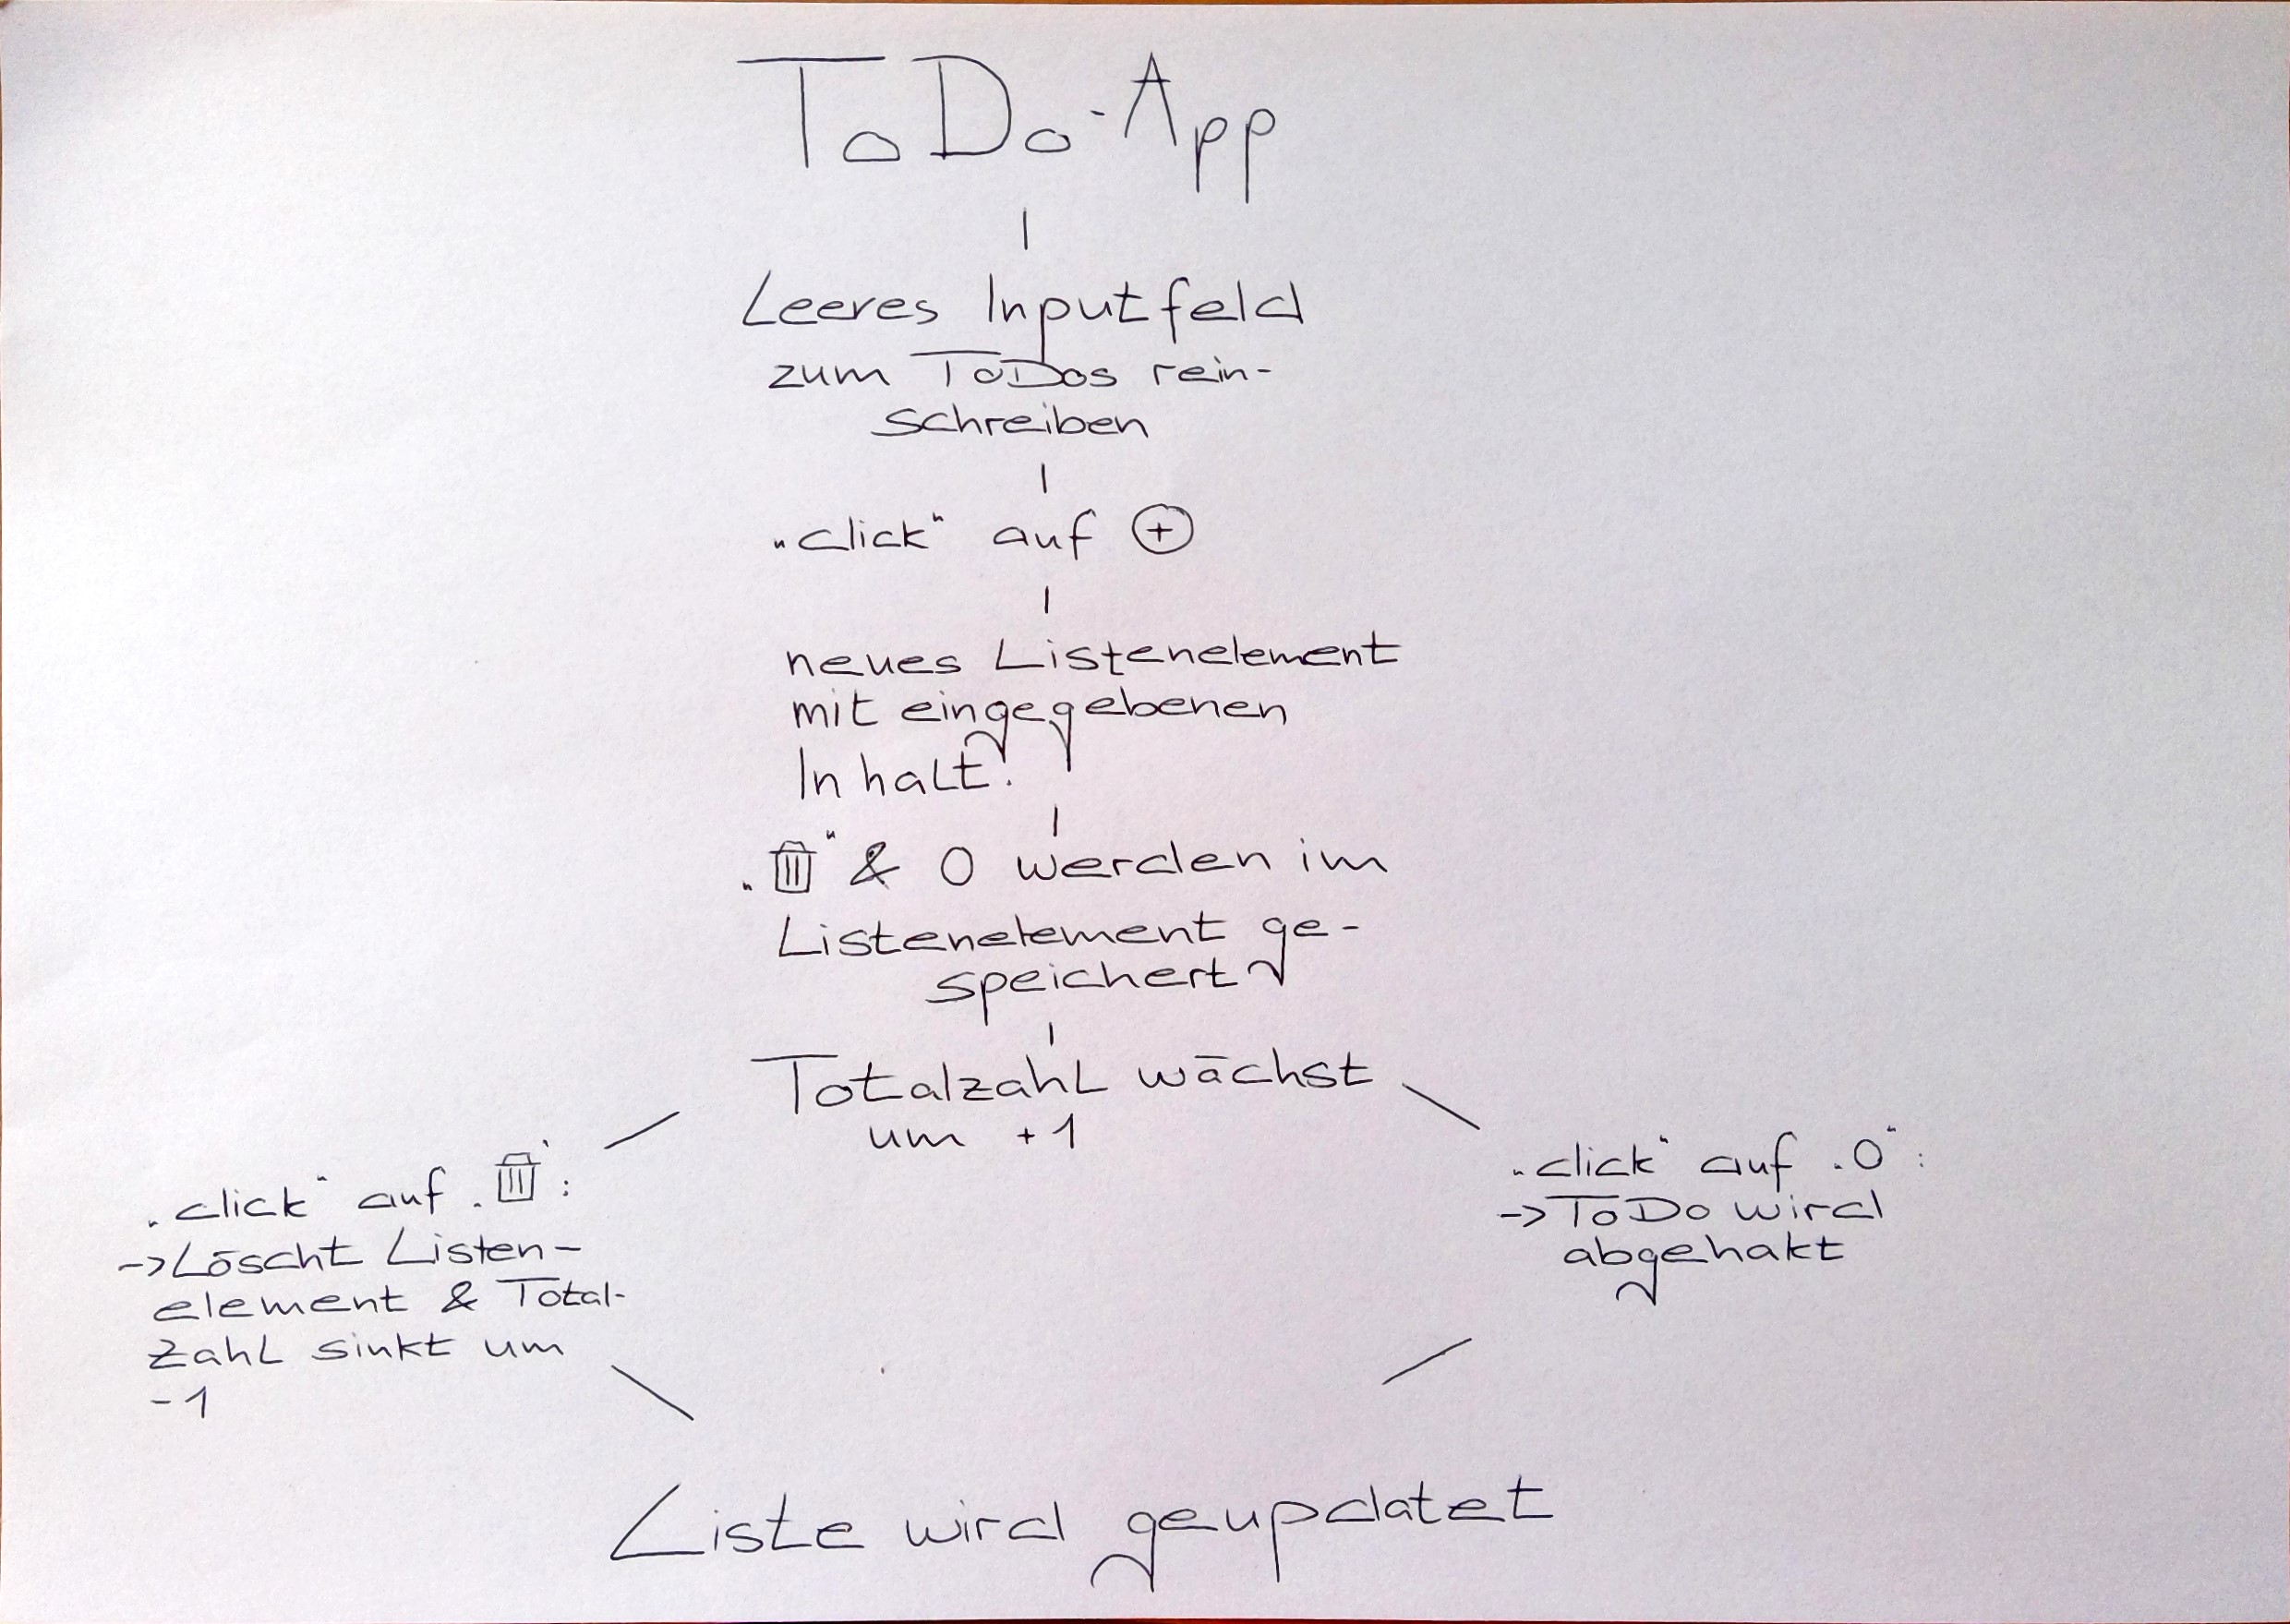 ToDo-App
Leeres Inputfeld
zum ToDos rein-
schreiben
„click" auf ⊕
neues Listenelement
mit eingegebenen
Inhalt!
„🗑" & O werden im
Listenelement ge-
speichert
Totalzahl wächst
um +1
„click" auf „🗑":
->Löscht Listen-
element & Total-
zahl sinkt um
-1
„click" auf „O":
->ToDo wird
abgehakt
Liste wird geupdatet